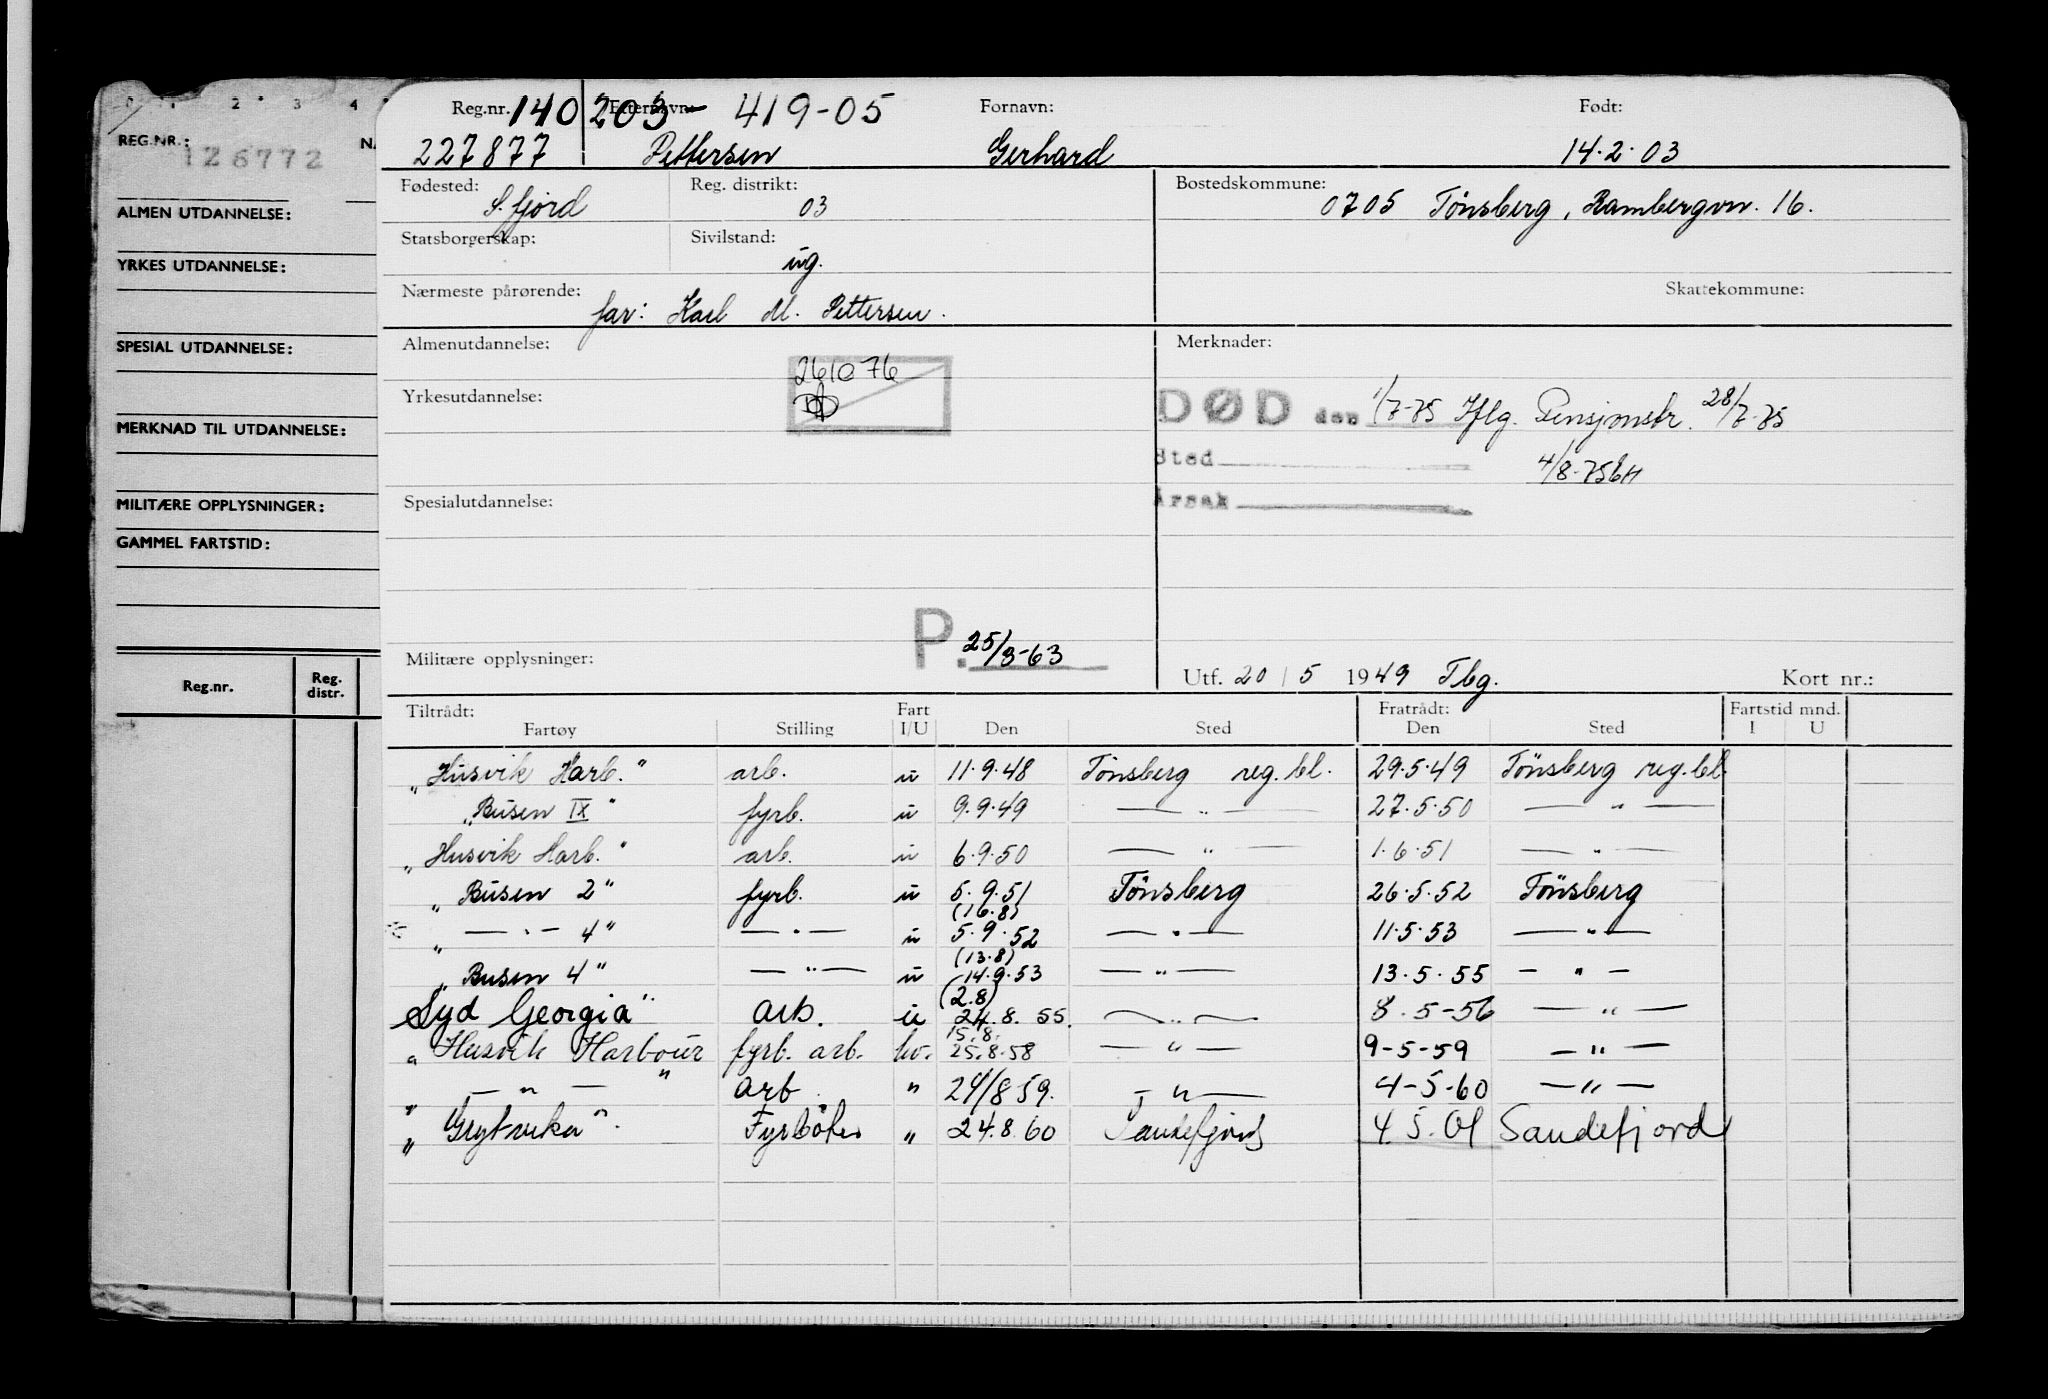 0 1 2 3 4
REG.NR.: 126772 NA
ALMEN UTDANNELSE:
YRKES UTDANNELSE:
SPESIAL UTDANNELSE:
MERKNAD TIL UTDANNELSE:
MILITÆRE OPPLYSNINGER:
GAMMEL FARTSTID:
Reg.nr. Reg. distr.
Reg.nr. 140 203 - 419-05 Etternavn: Fornavn: Født:
227877 Pettersen Gerhard 14.2.03
Fødested: Reg. distrikt: Bostedskommune:
S.fjord 03 0705 Tönsberg, Rambergvn. 16.
Statsborgerskap: Sivilstand:
ug.
Nærmeste pårørende: Skattekommune:
far: Karl M. Pettersen.
Almenutdannelse: Merknader:
261076
Yrkesutdannelse:
DØD den 1/7-75 Iflg. Pensjonstr. 28/7-75
Sted 4/8-75
Årsak
Spesialutdannelse:
P. 25/3-63
Militære opplysninger:
Utf. 20 / 5 1949 Tbg. Kort nr.:
Tiltrådt: Fart Fratrådt: Fartstid mnd.
Fartøy Stilling I/U Den Sted Den Sted I U
"Husvik Harb." arb. u 11.9.48 Tönsberg reg.bl. 29.5.49 Tönsberg reg.bl.
"Busen IX" fyrb. u 9.9.49 — " — 27.5.50 — " —
"Husvik Harb." arb. u 6.9.50 — " — 1.6.51 — " —
"Busen 2" fyrb. u 5.9.51 Tönsberg 26.5.52 Tönsberg
(16.8)
" — " — 4" — " — u 5.9.52 — " — 11.5.53 — " —
(13.8)
"Busen 4" — " — u 14.9.53 — " — 13.5.55 — " —
(2.8)
Syd Georgia" arb. u 24.8.55. — " — 8.5-56 — " —
15.8.
"Husvik Harbour fyrb. arb. hv. 25.8.58 — " — 9-5-59 — " —
" — " — " arb. " 24/8 59. — " — 4-5-60 — " —
"Grytvika". Fyrböter " 24.8.60 Sandefjord 4 5. 61 Sandefjord